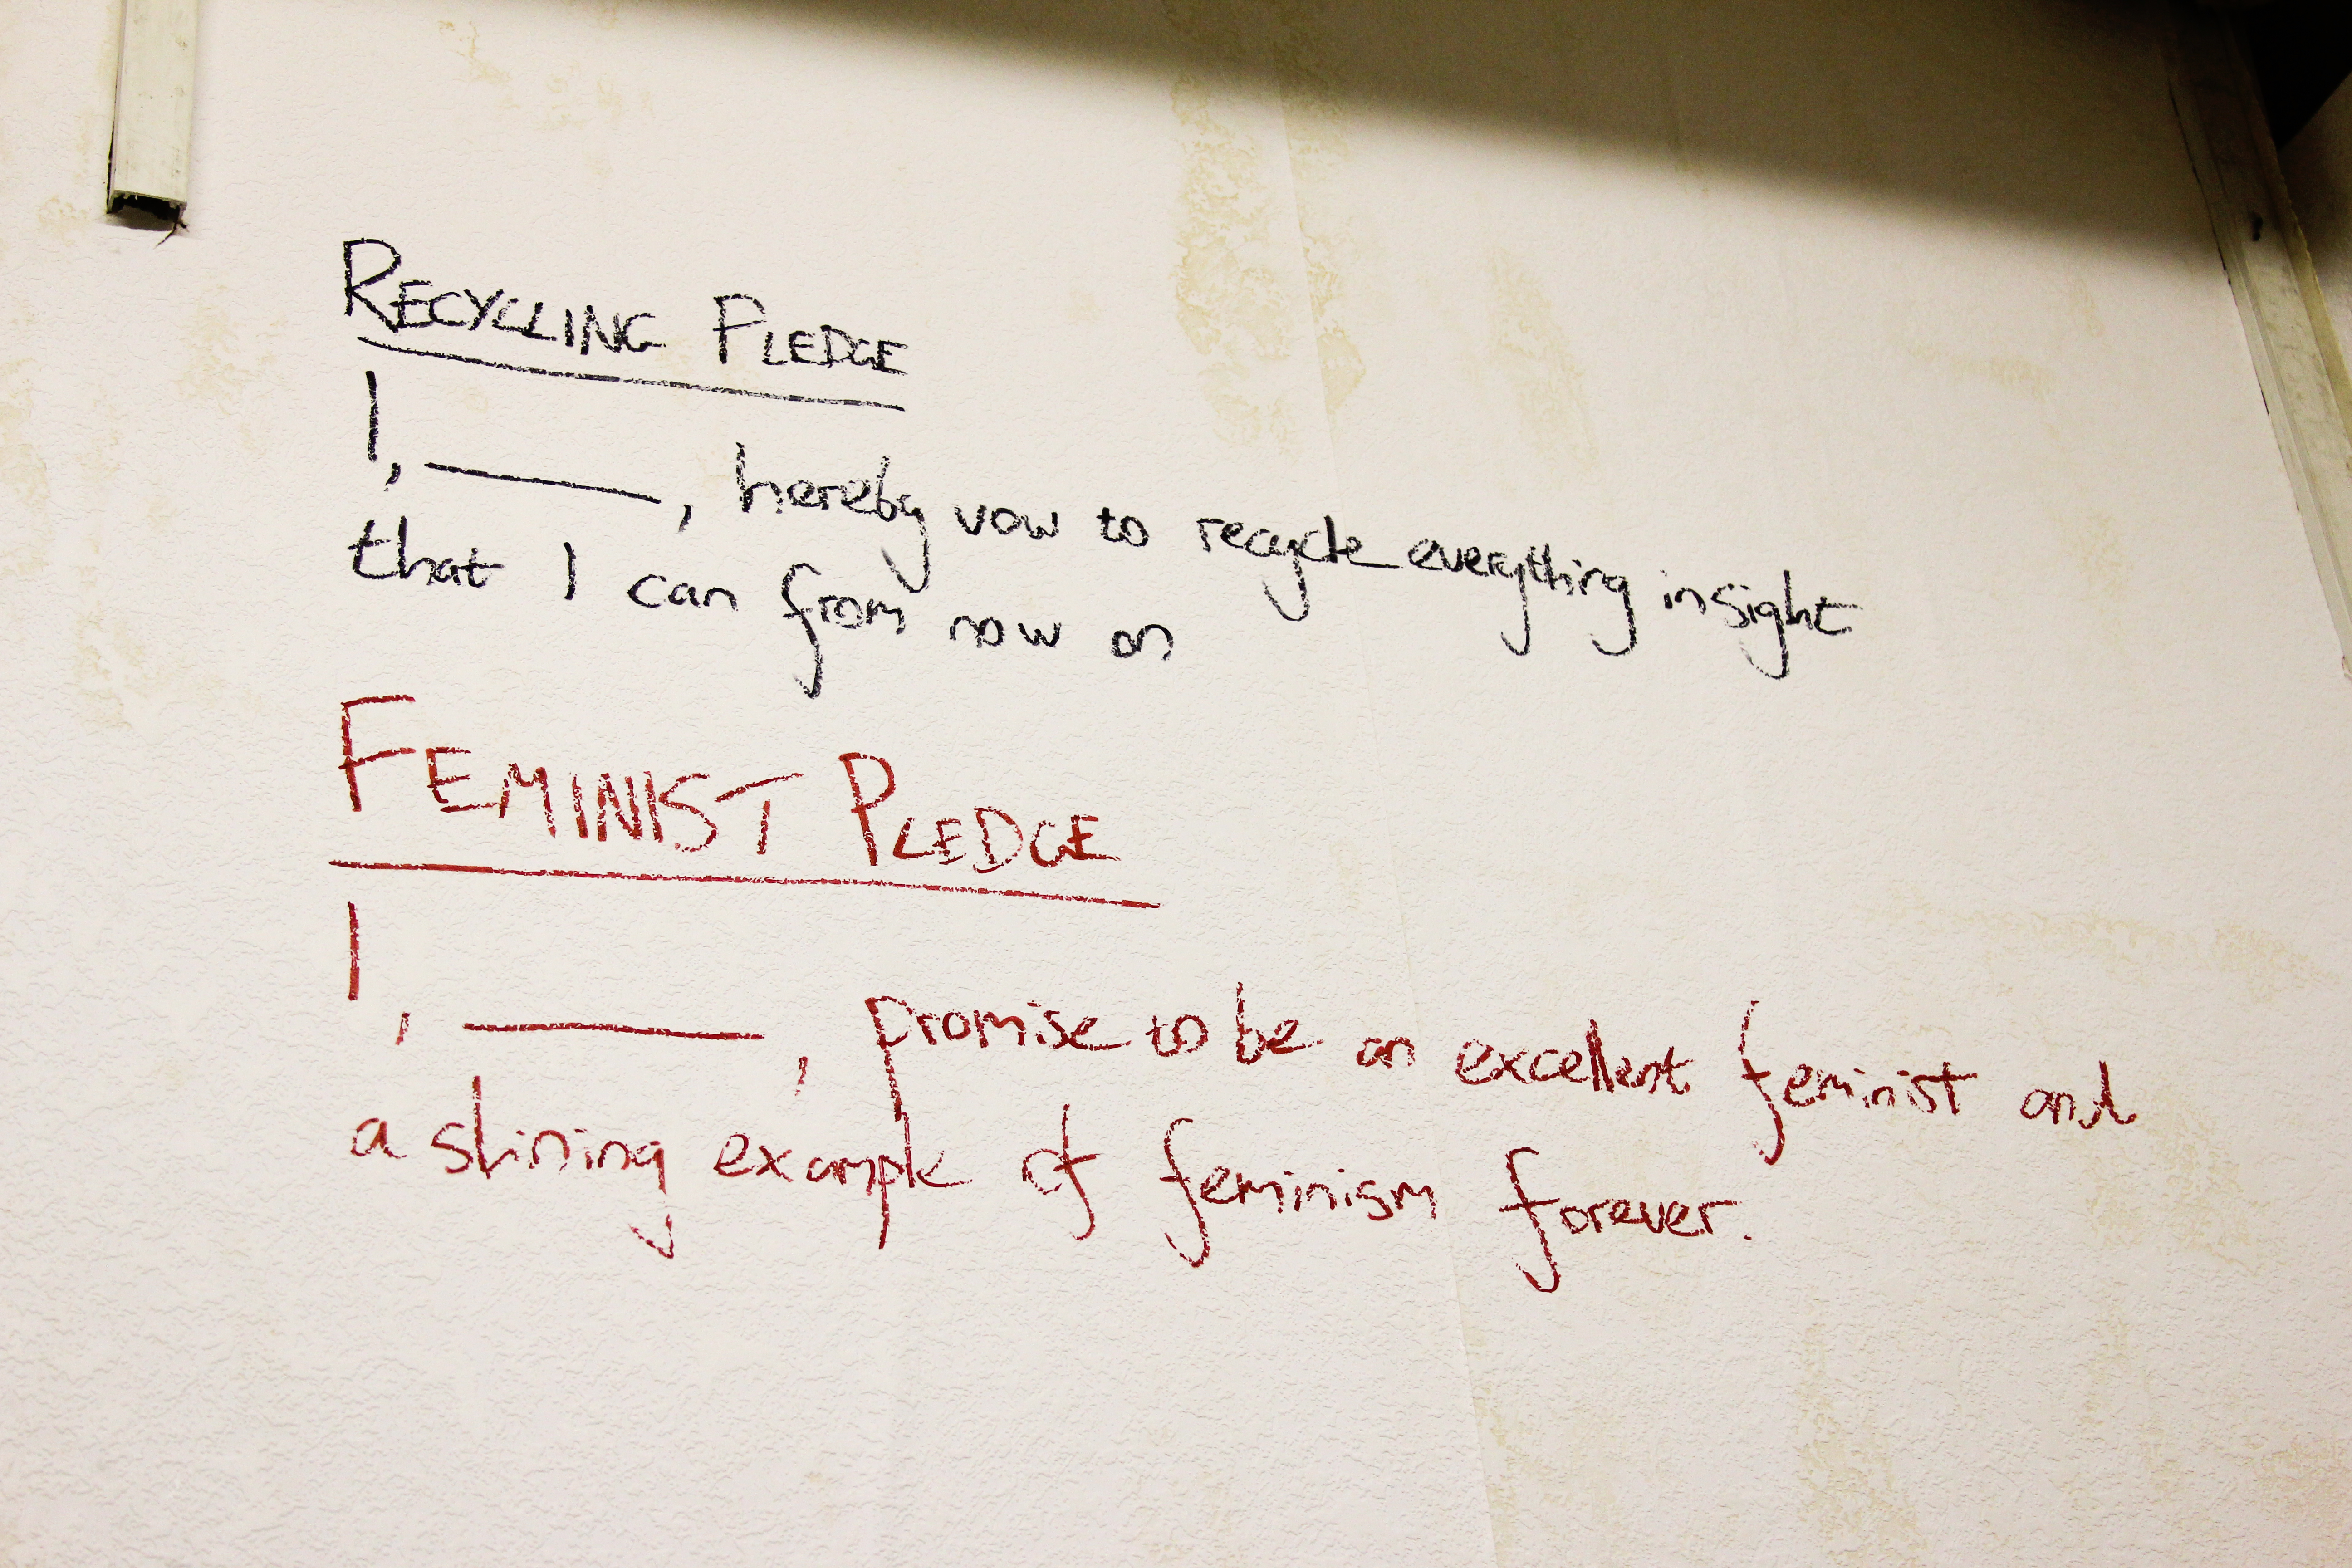 RECYCLING PLEDGE
I, ______, hereby vow to recycle everything insight
that I can from now on
FEMINIST PLEDGE
I, ______, promise to be an excellent feminist and
a shining example of feminism forever.